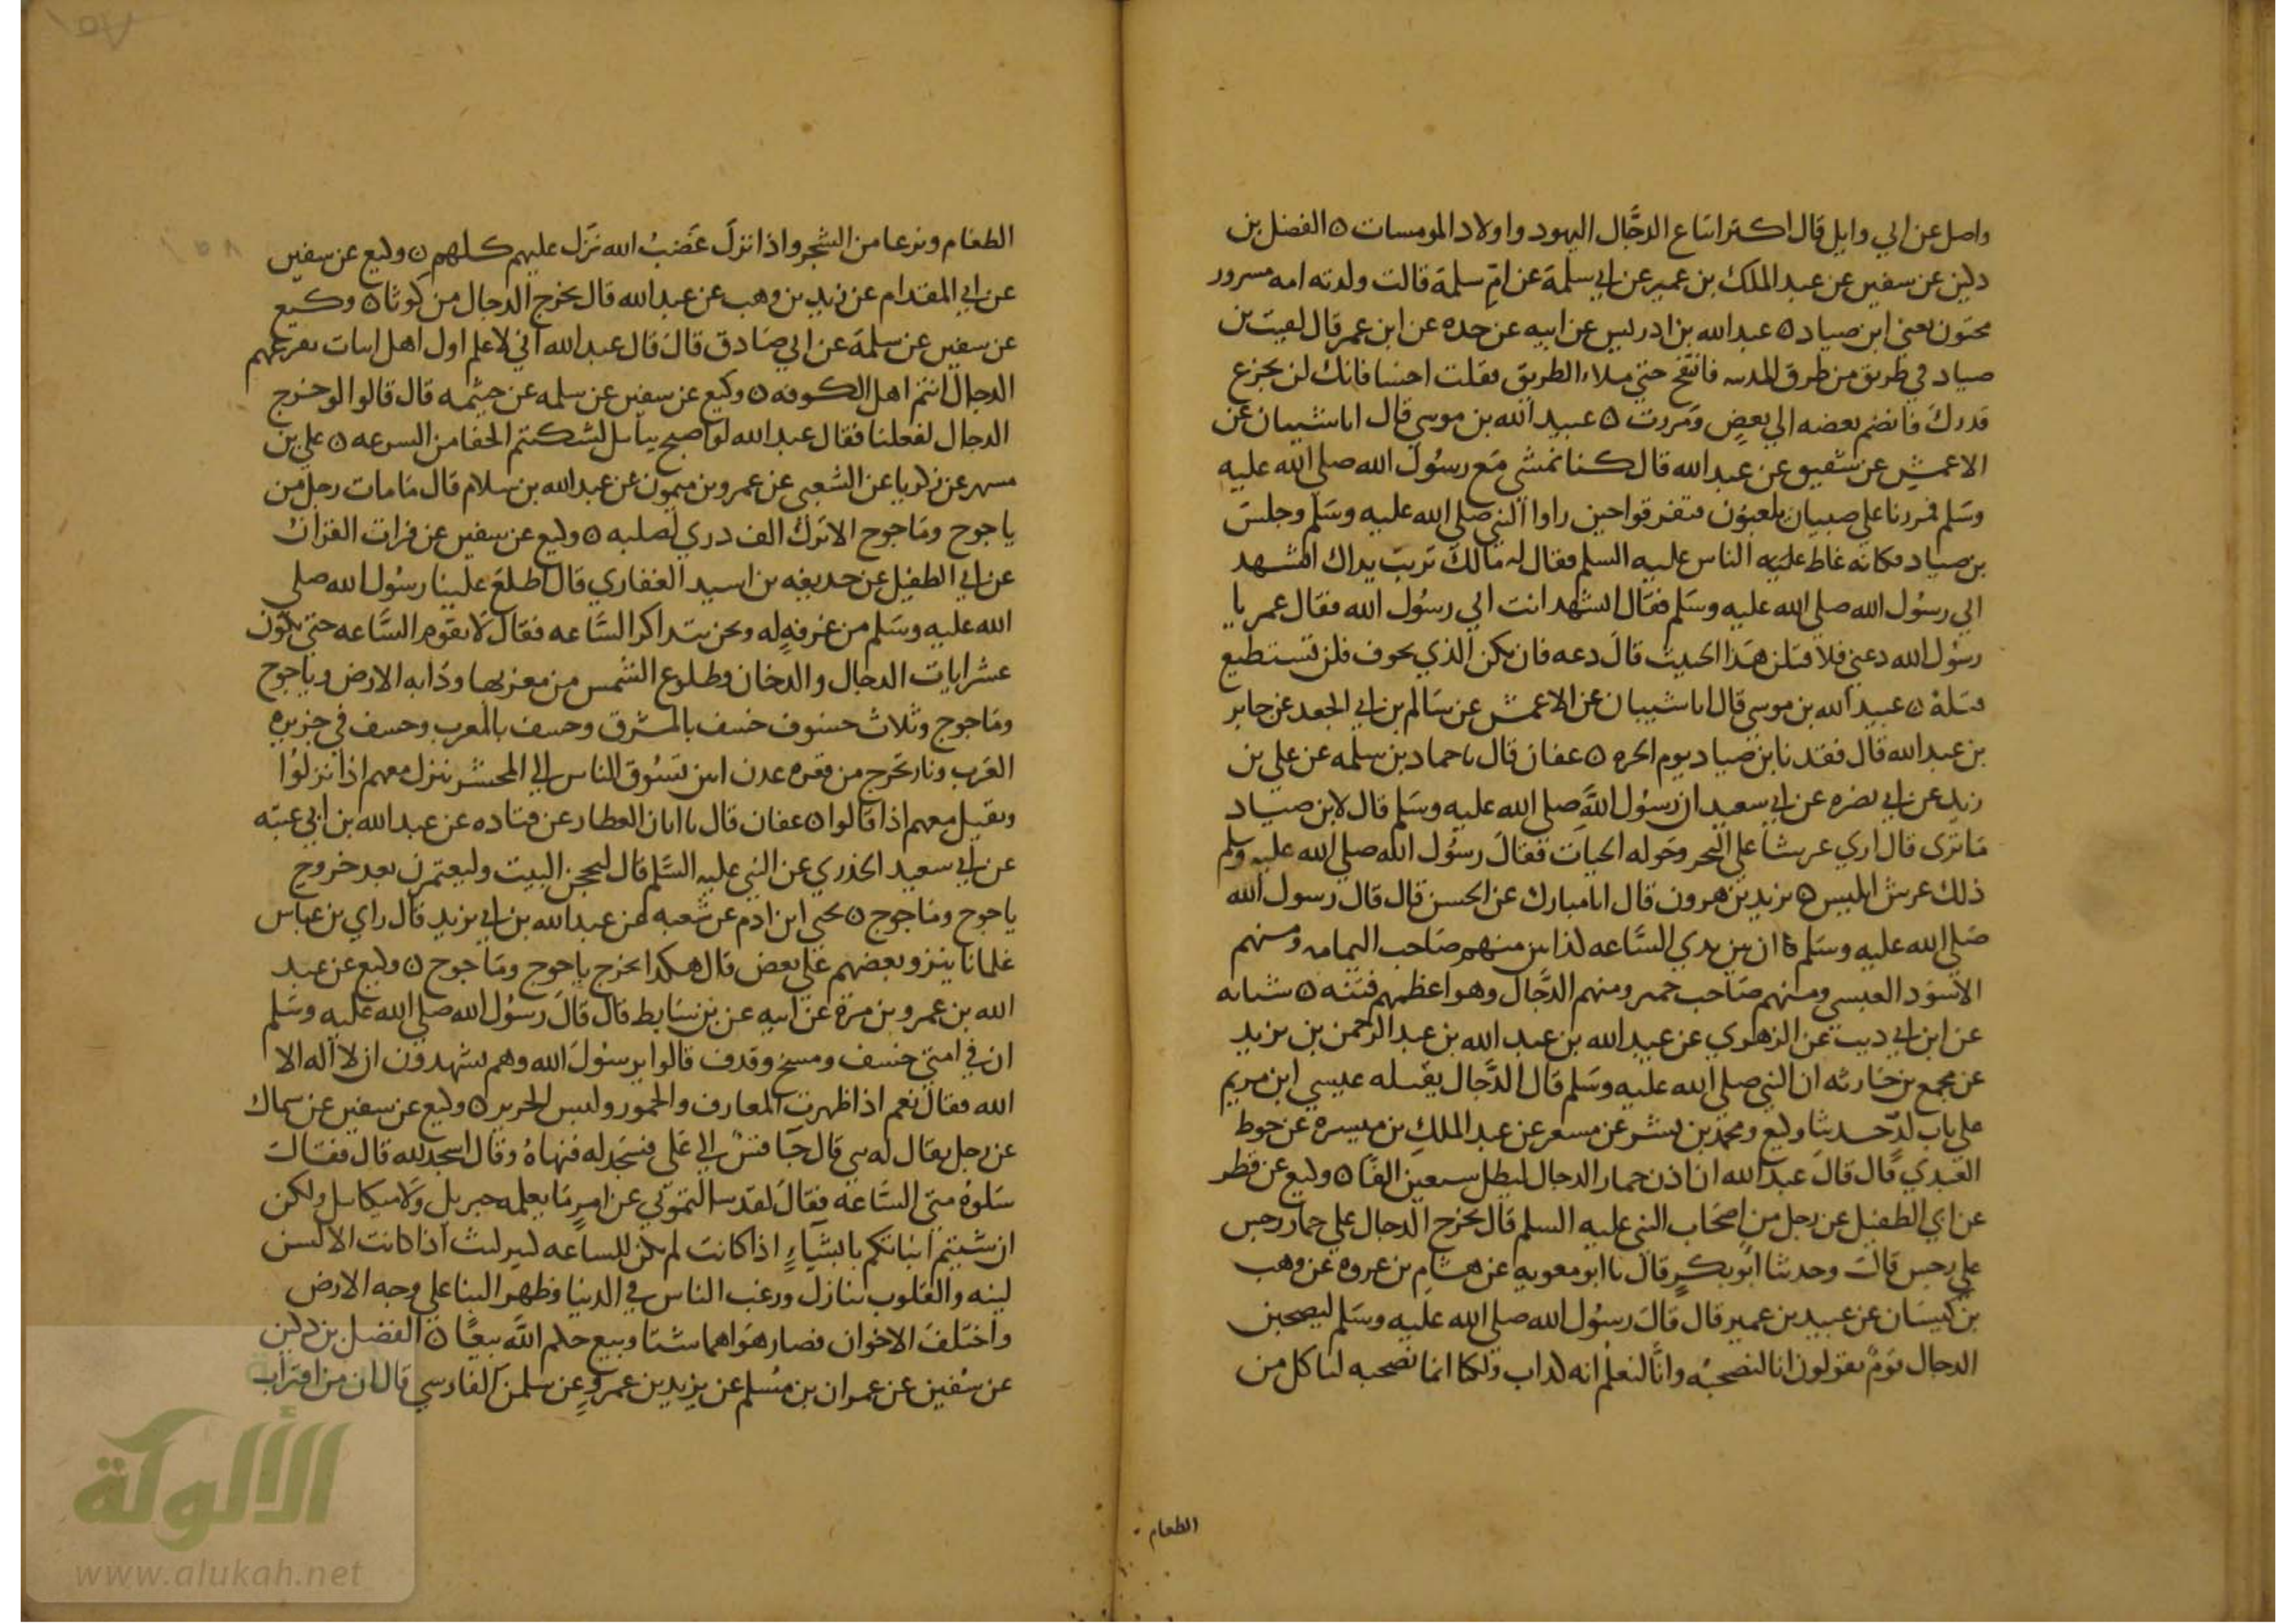 واصل عن ابي وايل قال اكثر اتباع الدجَّال اليهود واولاد المومسات ٥ الفضل بن
دكين عن سفين عن عبد الملك بن عمير عن ابي سلمة عن امّ سلمة قالت ولدته امه مسرور
مختون يعني ابن صياد ٥ عبد الله بن ادريس عن ابيه عن جده عن ابن عمر قال لقيت بن
صياد في طريق من طرق المدينه فانتفخ حتي ملاء الطريق فقلت اخسا فانك لن
قدرك فانضم بعضه الي بعض ومررت ٥ عبيد الله بن موسي قال انا شيبان عن
الاعمش عن شقيق عن عبد الله قال كنا نمشي مع رسُول الله صلي الله عليه
وسَلم فمررنا علي صبيان يلعبون فتفرقوا حين راوا النبي صلي الله عليه وسَلم وجلسَ
بن صياد فكانه غاظ عليه الناس عليه السلم فقال له مالك تربت يداك اتشهد
اني رسُول الله صلي الله عليه وسَلم فقال اتشهد انت اني رسُول الله فقال عمر يا
رسُول الله دعني فلاقتلن هذا الخبيث قالَ دعه فان يكن الذي نخوف فلن تستطيع
قتله ٥ عبيد الله بن موسي قال انا شيبان عن الاعمش عن سَالم بن ابي الجعد عن جابر
بن عبد الله قال فقدنا بن صياد يوم الحره ٥ عفان قال نا حماد بن سلمه عن علي بن
زيد عن ابي نضره عن ابي سعيد ان رسُول اللهَّ صلي الله عليه وسَلم قال لابن صياد
مَا ترَى قال اري عرشاً علي البحر وحَوله الحيات فقالَ رسُول الله صلي الله عليه وسلم
ذلك عرش ابليس ٥ يزيد بن هرون قال انا مبارك عن الحسن قال قال رسول الله
صَلي الله عليه وسَلم ان بين يدي السَّاعه لكذابين منهم صَاحب اليمامه ومنهم
الاسوَد العبسي ومنهم صَاحب حمير ومنهم الدَّجَّال وهو اعظمهم فتنه ٥ شبابه
عن ابن ابي ديب عن الزهري عن عبيد الله بن عبد الله بن عبد الرحمن بن يزيد
عن مجمع بن حَارثه ان النبي صلي الله عليه وسَلم قال الدَّجال يقتله عيسي ابن مريم
علي باب لدّ حدثنا وكيع ومحمد بن بشر عن مسعر عن عبد الملك بن ميسره عن حوط
العبدي قال قالَ عبد الله ان اذن حمار الدجال لتظل سبعين الفًا ٥ وكيع عن فطر
عن ابي الطفيل عن رجل من اصحَاب النبي عليه السلم قال يخرج الدجال علي حمار رجس
علي رجس قالَ وحدثنا ابُو بكر قال نا ابو معويه عن هشام بن عروه عن وهب
بن كيسَان عن عبيد بن عمير قال قالَ رسُول الله صلي الله عليه وسَلم ليصحبن
الدجال قومٌ يقولون انا لنصحبُه وانَّا لنعلم انه لكذاب ولكنا انما نصحبه لناكل من
الطعام
الطعَام ونرعا من الشجر واذا نزلَ غَضبُ الله نزَل عليهم كلهم ٥ وكيع عن سفين
عن ابي المقدام عن زيد بن وهب عن عبد الله قال يخرج الدجال من كوثا ٥ وكيع
عن سفين عن سلمة عن ابي صَادق قالَ قال عبد الله اني لاعلم اول اهل ابيات يقرعهم
الدجال انتم اهل الكوفه ٥ وكيع عن سفين عن سلمه عن خيثمه قال قالوا لو خرج
الدجال لفعلنا فقال عبد الله لو اصبح ببابل لشكيتم الحفا من السرعه ٥ علي بن
مسهر عن زكريا عن الشعبي عن عمرو بن ميمون عن عبد الله بن سلام قال مَا مات رجل من
ياجوج ومَاجوج الا ترك الف دري لصلبه ٥ وكيع عن سفين عن فرات القزاز
عن ابي الطفيل عن حذيفه بن اسيد الغفاري قال اطلعَ علينا رسُول الله صلي
الله عليه وسَلم من غرفهٍ له ونحن نتذاكر السَّاعه فقالَ لَا تقوم السَّاعه حتي تكون
عشر ايات الدجال والدخان وطلوع الشمس من مغربها ودَابه الارض وياجوج
ومَاجوج وثلاث خسوف خسف بالمشرق وخسف بالمغرب وخسف في جزيره
العَرب ونار تخرج من قعره عدن ابين تسُوق الناس الي المحشر تنزل معهم اذا نزلوُا
وتقيل معهم اذا قالوا ٥ عفان قال نا ابان العطار عن قتاده عن عبد الله بن ابي عتبه
عن ابي سعيد الخذري عن النبي عليه السَّلم قال ليحجن البيت وليعتمرن بعد خروج
ياجوج ومَاجوج ٥ يحيي ابن ادم عن شعبه عن عبد الله بن ابي يزيد قال راي بن عباس
غلمانا ينزو بعضهم علي بعض قال هكذا يخرج ياجوج ومَاجوج ٥ وكيع عن عبد
الله بن عمرو بن مرة عن ابيه عن بن سَابط قال قالَ رسُول الله صلي الله عليه وسَلم
ان في امتي خسف ومسخ وقذف قالوا يرسُولَ الله وهم يشهدون ان لا اله الا
الله فقالَ نعم اذا ظهرت المعازف والخمور ولبس الحرير ٥ وكيع عن سفين عن سماك
عن رجل يقال له قال جَا قسٌ الي علي فسَجد له فنهاهُ وقال اسجد لله قال فقالَ
سَلوهُ متي السَّاعه فقالَ لقد سالتموني عن امرٍ مَا يعلمه جبريل ولَا ميكايل ولكن
ان شيتم انباتكم باشيآءٍ اذا كانت لم يكن للساعه كبير لبث اذا كانت الالسن
لينه والقلوب ننازل ورغب الناس في الدنيا وظهر البنا علي وجه الارض
واختَلفَ الاخوان فصار هَواهما شتا وبيع حكم اللهَّ بيعًا ٥ الفضل بن دكين
عن سُفين عن عمران بن مُسلم عن يزيد بن عمروٍ عن سلمن الفارسي قال ان من اقتراب
الألوكة
www.alukah.net